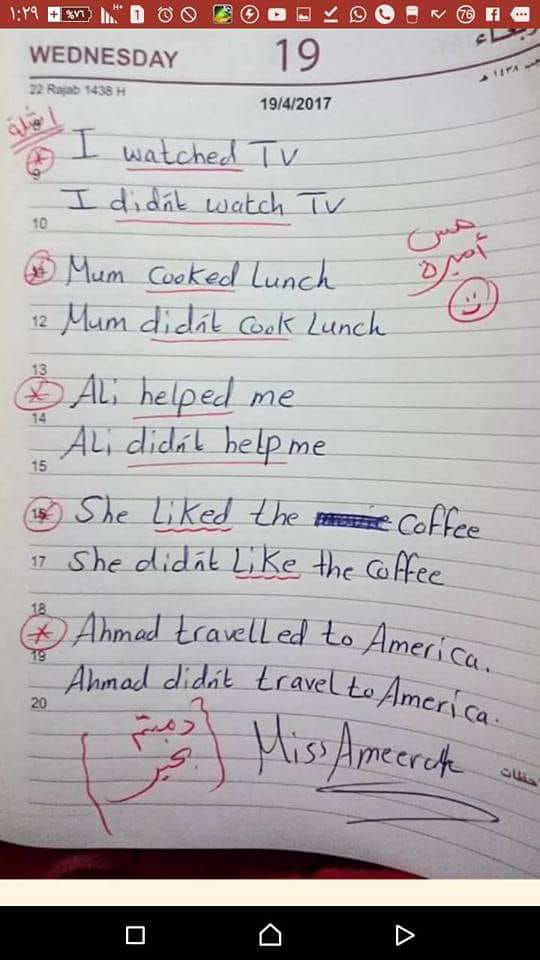 ١:٢٩ %٧٦ H+ 1 76
WEDNESDAY 19
22 Rajab 1438 H
١٤٣٨ هـ
19/4/2017
أمثلة
I watched TV
9
I didn't watch TV
10
مس
أميرة
Mum Cooked Lunch
12 Mum didn't Cook Lunch
13
Ali helped me
14
Ali didn't help me
15
She Liked the Coffee
17 She didn't Like the Coffee
18
Ahmad travelled to America.
19
Ahmad didn't travel to America.
20
دمتم
بخير
Miss Ameerah